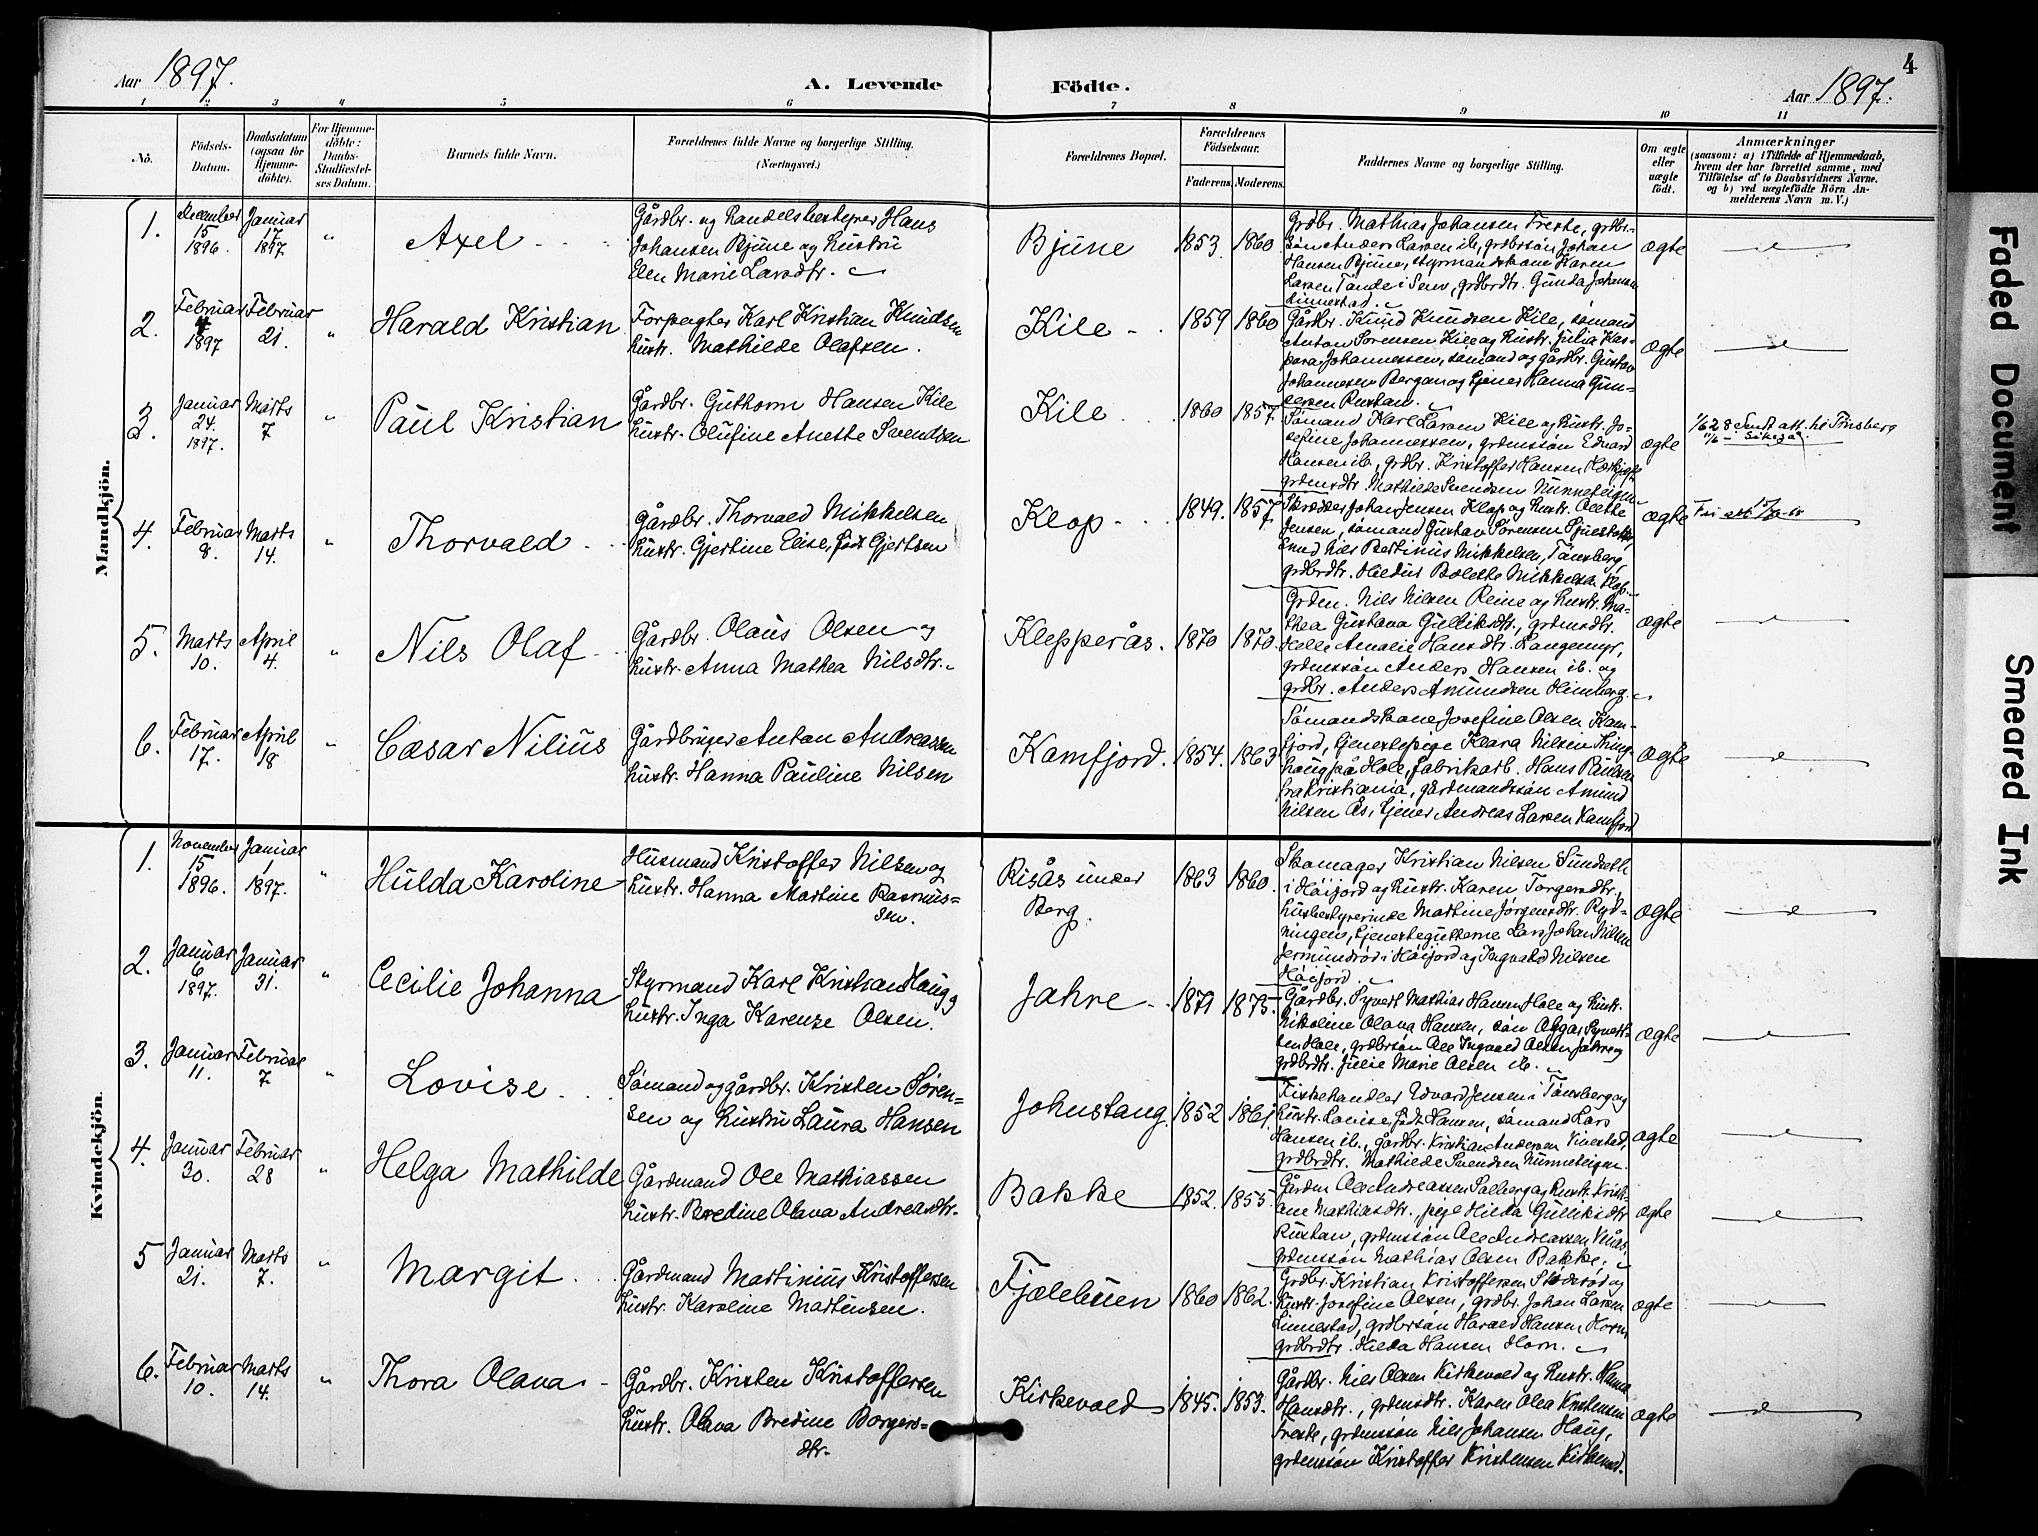 4
Aar 1897.
A. Levende
Födte.
Aar 1897.
1 2 3 4 5 6 7 8 9 10 11
No.
Födsels-
Datum.
Daabsdatum
(ogsaa for
Hjemme-
döbte).
For Hjemme-
döbte:
Daabs-
Stadfæstel-
ses Datum.
Barnets fulde Navn.
Forældrenes fulde Navne og borgerlige Stilling.
(Næringsvei.)
Forældrenes Bopæl.
Forældrenes
Födselsaar.
Faderens. Moderens.
Faddernes Navne og borgerlige Stilling.
Om ægte
eller
uægte
födt.
Anmærkninger
(saasom: a) i Tilfælde af Hjemmedaab,
hvem der har forrettet samme, med
Tilföielse af to Daabsvidners Navne,
og b) ved uægtefödte Börn An-
melderens Navn m. V.)
Mandkjön.
1.
December
15
1896.
Januar
17
1897
"
Axel
Gårdbr. og Handelsbestyrer Hans
Johansen Bjune og hustru
Elen Marie Larsdtr.
Bjune
1853. 1860
Grdbr. Mathias Johansen Freste, grdbr-
søn Anders Larsen ib., grdbrsøn Johan
Hansen Bjune, styrmandskone Karen
Larsen Tande i Sem, grdbrdtr. Gunda Johansen
Linnestad.
ægte
2.
Februar
4
1897
Februar
21.
"
Harald Kristian
Forpagter Karl Kristian Knudsen
hustr. Mathilde Olafsen.
Kile
1859 1860
Gårdbr. Knud Knudsen Kile, sømand
Anton Sørensen Kile og hustr. Julia Kas-
para Johannessen, sømand og gårdbr. Gustav
Johannesen Bergan og tjener Hanna Gun-
dersen Rustan.
ægte
3.
Januar
24.
1897.
Marts
7
"
Paul Kristian
Gårdbr. Guthorm Hansen Kile
hustr. Olufine Anette Svendsen
Kile
1860 1857.
Sømand Karl Larsen Kile og hustr. Jo-
sefine Johannessen, grdmssøn Edvard
Hansen ib., grdbr. Kristoffer Hansen
grdmsdtr. Mathilde Svendsen Nunneteigen
ægte
1/6 28 Sendt att. til Tønsberg
4.
Februar
8.
Marts
14.
"
Thorvald
Gårdbr. Thorvald Mikkelsen
hustr. Gjertine Elise, født Gjertsen
Klop
1849. 1857
Skrædder Johan Jensen Klop og hustr. Olette
Jensen, sømand Gustav Sørensen
Smed Nils Bertinus Mikkelsen, Tønsberg,
grdbrdtr. Hildus Bolette Mikkelsen Klop.
ægte
Fri att.
5.
Marts
10.
April
4.
"
Nils Olaf
Gårdbr. Olaus Olsen og
hustr. Anna Mathea Nilsdtr.
Klepperås.
1870 1870.
Grdm. Nils Nilsen Reine og hustr. Ma-
thea Gustava Gulliksdtr., grdmsdtr.
Helle Amalie Hansdtr. Langemyr,
grdmssøn Anders Hansen ib. og
grdbr. Anders Amundsen Himberg.
ægte
6.
Februar
17.
April
18
"
Cæsar Nilius
Gårdbruger Anton Andreassen
hustr. Hanna Pauline Nilsen
Kamfjord.
1854. 1863
Sømandskone Josefine Olsen Kam-
fjord, tjenestepige Klara Nilsen Thing-
haug på Hole, fabrikarb. Hans Paulsen
fra Kristiania, gårdmandssøn Amund
Nilsen Ås, tjener Andreas Larsen Kamfjord
ægte
Kvindekjön.
1.
November
15
1896.
Januar
1
1897.
"
Hulda Karoline
Husmand Kristoffer Nilsen og
hustr. Hanna Martine Rasmus-
sen.
Risås under
Berg.
1863 1860.
Skomager Kristian Nilsen Sundseth
i Høijord og hustr. Karen Torgersdtr.,
husbestyrerinde Martine Jørgensdtr. Ryd-
ningen, tjenestegutterne Lars Johan Nilsen
Jermundrød i Høijord og Ingvald Nilsen
Høijord
ægte
2.
Januar
6
1897.
Januar
31.
"
Cecilie Johanna
Styrmand Karl Kristian Haug og
hustr. Inga Karense Olsen.
Jahre
1871 1875.
Gårdbr. Syvert Mathias Hansen Hole og hustr.
Nikoline Olava Hansen, søn Olgar Syvert-
sen Hole, grdbrsøn Ole Ingvald Olsen Jahre og
grdbrdtr. Julie Marie Olsen ib.
ægte
3.
Januar
11.
Februar
7
"
Lovise
Sømand og gårdbr. Kristen Søren-
sen og hustru Laura Hansen
Johnstang.
1852 1861.
Fiskehandler Edvard Jensen i Tønsberg og
hustr. Lovise født Hansen, sømand Lars
Hansen ib., gårdbr. Kristian Andersen Vinestad,
grdbrdtr. Mathilde Svendsen Nunneteigen.
ægte
4.
Januar
30.
Februar
28
"
Helga Mathilde
Gårdmand Ole Mathiassen
hustr. Bredine Olava Andreasdtr.
Bakke
1852. 1855.
Gårdm. Ole Andreassen Solberg og hustr. Krist-
ine Mathiasdtr., pige Hilda Gulliksdtr
Rustan, grdmssøn Ole Andreassen Vinås,
grdmssøn Mathias Olsen Bakke.
ægte
5
Januar
21.
Marts
7.
"
Margit
Gårdmand Martinius Kristoffersen
hustr. Karoline Martinsen.
Fjælebuen
1860 1862.
Grdbr. Kristian Kristoffersen Stødsrød og
hustr. Josefine Olsen, grdbr. Johan Larsen
Linnestad, grdbrsøn Harald Hansen Horn
grdbrdtr. Hilda Hansen Horn.
ægte
6.
Februar
10.
Marts
14.
"
Thora Olava
Gårdbr. Kristen Kristoffersen
hustr. Olava Bredine Borgers-
dtr.
Kirkevold
1845. 1853.
Gårdbr. Nils Olsen Kirkevold og hustr. Hanna
Hansdtr., grdmsdtr. Karen Olea Kristensen
Freste, grdmssøn Nils Johansen Haug,
grdmssøn Kristoffer Kristensen Kirkevold.
ægte
Faded Document
Smeared Ink